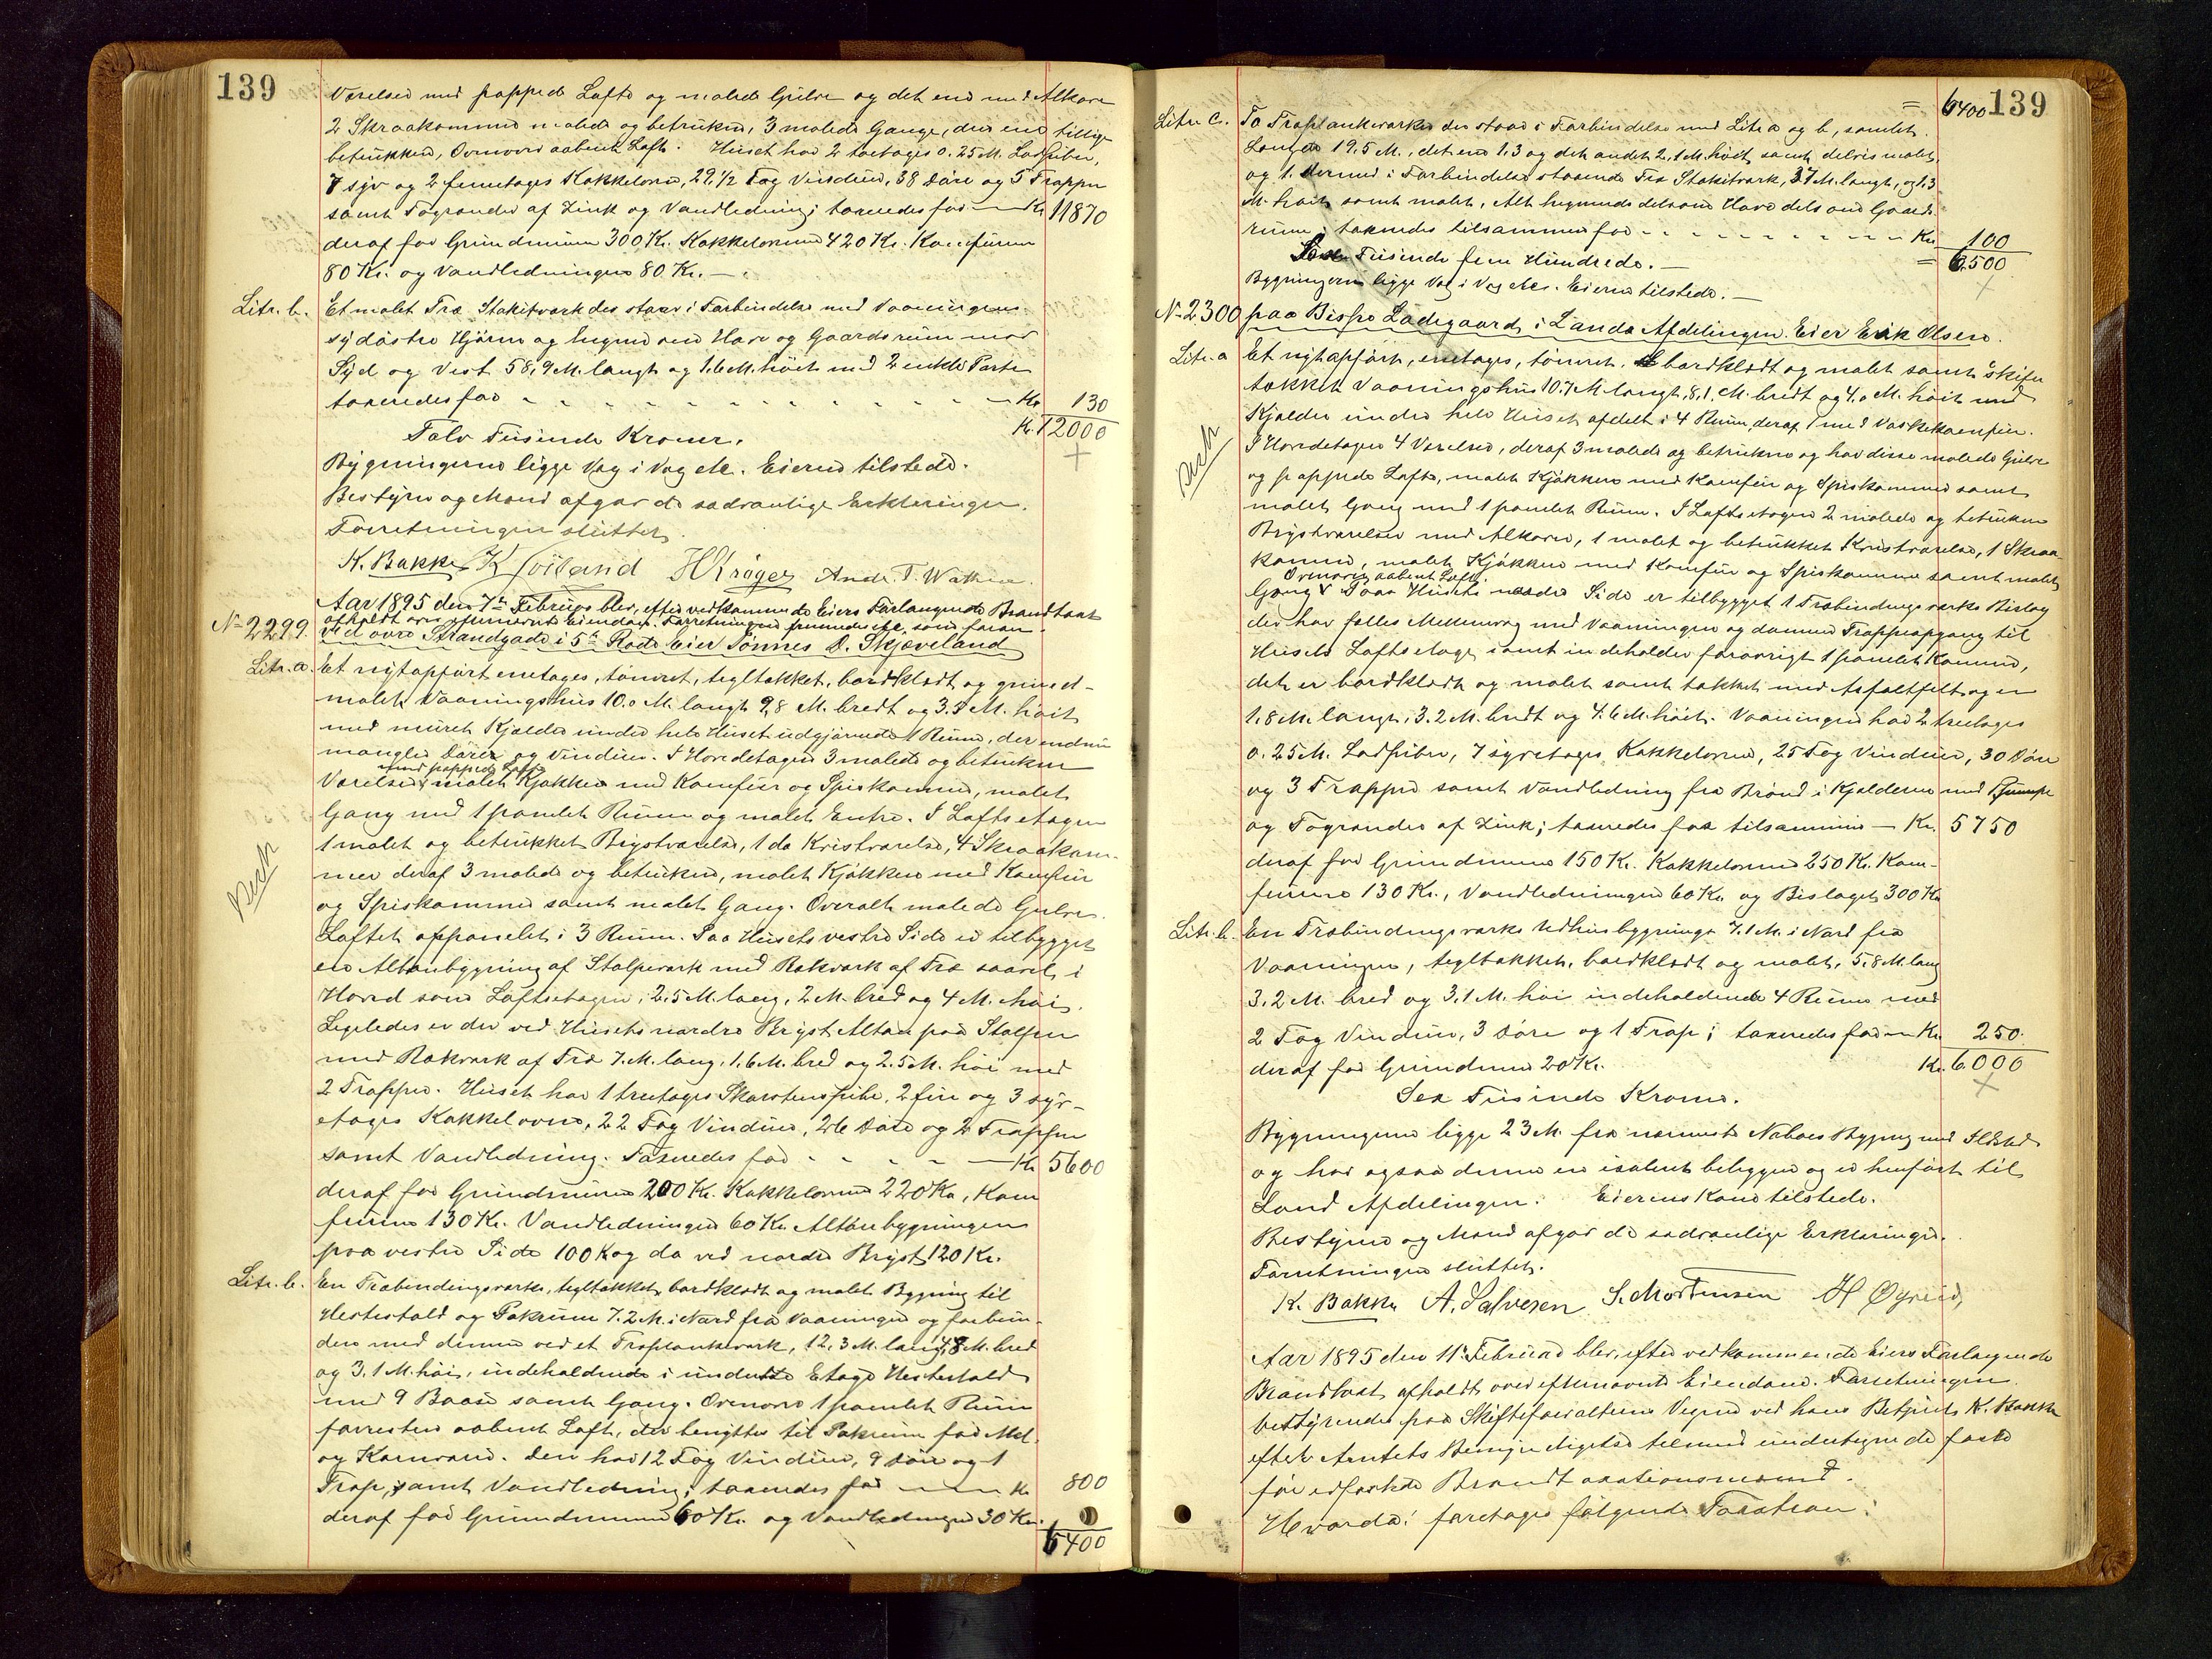 139
Værelser med pappede Lofte og malede Gulve og det ene med Alkove
2 Skraakammere malede og betrukne, 3 malede Gange, den ene tillige
betrukken, Ovenover aabent Loft. Huset har 2 toetages 0.25 M. Lodpiber,
7 syv og 2 femetages Kakkelovne, 29 1/2 Fag Vinduer, 38 Døre og 5 Trapper
samt Tagrender af Zink og Vandledning; taxeredes for — Kr. 11870
deraf for Grundmuren 300 Kr. Kakkelovnene 420 Kr. Komfuren
80 Kr. og Vandledningen 80 Kr. —
Litr. b. Et malet Træ Stakitværk der staar i Forbindelse med Vaaningens
sydøstre Hjørne og hegner om Have og Gaardsrum mod
Syd og Vest 58,9 M. langt og 1.6 M. høit med 2 enkle Porte
taxeredes for - - - Kr. 130
Tolv Tusinde Kroner. Kr. 12000
Bygningerne ligge Væg i Væg etc. Eieren tilstede.
Bestyrer og Mænd afgav de sædvanlige Erklæringer.
Forretningen sluttet.
K. Bakke K Høiland H Krøger Andr. T. Wathne
Aar 1895 den 7de Februar blev, efter vedkommende Eiers Forlangende Brandtaxt
afholdt over efternævnte Eiendom. Forretningen fremmedes etc. som foran.
No 2299. Ved øvre Strandgade i 5te Rode Eier Tønnes D. Skjæveland
Litr. a. Et nytopført enetages, tømret, tegltækket, bordklædt og grund-
malet Vaaningshus 10.0 M. langt 9,8 M. bredt og 3.3 M. høit
med muret Kjelder under hele Huset udgjørende 1 Rum, der endnu
mangler Dører og Vinduer. I Hovedetagen 3 malede og betrukne
med pappede Lofte
Værelser, malet Kjøkken med Komfur og Spiskammer, malet
Gang med 1 panelet Rum og malet Entre. I Loftsetagen
1 malet og betrukket Brystværelse, 1 do Kvistværelse, 4 Skraakam-
mer deraf 3 malede og betrukne, malet Kjøkken med Komfur
og Spiskammer samt malet Gang. Overalt malede Gulve.
Loftet oppanelet i 3 Rum. Paa Husets vestre Side er tilbygget
en Altanbygning af Stolpeværk med Rækværk af Træ saavel i
Hoved som Loftsetagen; 2,5 M. lang, 2 M. bred og 4 M. høi.
Ligeledes er der ved Husets nordre Bryst Altan paa Stolper
med Rækværk af Træ 7. M. lang, 1,6 M. bred og 2.5 M. høi med
2 Trapper. Huset har 1 treetages Skorstenspibe, 2 fire og 3 syv-
etages Kakkelovne, 22 Fag Vinduer, 26 Døre og 2 Trapper
samt Vandledning. Taxeredes for - - - Kr. 5600
deraf for Grundmuren 200 Kr. Kakkelovnene 220 Kr, Kom
furene 130 Kr. Vandledningen 60 Kr. Altanbygningen
paa vestre Side 100 K og do ved nordre Bryst 120 Kr.
Litr. b. En Træbindingsværks, tegltækket, bordklædt og malet Bygning til
Hestestald og Pakrum 7.2 M. i Nord fra Vaaningen og forbun-
den med denne ved et Træplankeværk, 12,3 M. lang, 4,8 M. bred
og 3,1 M. høi, indeholdende i underste Etage Hestestald
med 9 Baase samt Gang. Ovenover 1 panelet Rum
forresten aabent Loft, der benyttes til Pakrum for Mel
og Kornvarer. Den har 12 Fag Vinduer, 9 Døre og 1
Trap, samt Vandledning; taxeredes for — Kr 800
deraf for Grundmuren 60 Kr. og Vandledningen 30 Kr.
6400
= 6400 139
Litr. C. To Træplankeværker der staar i Forbindelse med Litr a og b, samlet
Længde 19.5 M., det ene 1,3 og det andet 2,1 M. høit samt delvis malet,
og 1 dermed i Forbindelse staaende Træ Stakitværk, 37 M. langt, og 1,3
M. høit samt malet, Alt hegnende dels om Have dels om Gaards-
rum; taxeredes tilsammen for - - - Kr. 100
Sex Tusinde fem Hundrede. — = 6500
Bygningerne ligge Væg i Væg etc. Eieren tilstede. —
No 2300 paa Bispe Ladegaard i Lands Afdelingen. Eier Erik Olsen.
Litr. a Et nytopført, enetages, tømret, bordklædt og malet samt skifer
tækket Vaaningshus 10.7 M. langt, 8,1 M. bredt og 4.0 M. høit med
Kjelder under hele Huset afdelt i 4 Rum, deraf 1 med Vaskekomfur.
I Hovedetagen 4 Værelser, deraf 3 malede og betrukne og har disse malede Gulve
og pappede Lofte, malet Kjøkken med Komfur og Spiskammer samt
malet Gang med 1 panelet Rum. I Loftsetagen 2 malede og betrukne
Brystværelser med Alkover, 1 malet og betrukket Kvistværelse, 1 Skraa-
kammer, malet Kjøkken med Komfur og Spiskammer samt malet
Ovenover aabent Loft.
Gang. Paa Husets nordre Side er tilbygget 1 Træbindingsværks Bislag
der har fælles Mellemvæg med Vaaningen og danner Trappeopgang til
Husets Loftsetage samt indeholder forøvrigt 1 panelet Kammer,
det er bordklædt og malet samt tækket med Asfaltfilt og er
1.8 M. langt, 3.2 M. bredt og 4.6 M. høit. Vaaningen har 2 treetages
0.25 M. Lodpiber, 7 syvetages Kakkelovne, 25 Fag Vinduer, 30 Døre
og 3 Trapper samt Vandledning fra Brønd i Kjelderen med 1 Pumpe
og Tagrender af Zink; taxeredes for tilsammen — Kr. 5750
deraf for Grundmuren 150 Kr. Kakkelovnene 250 Kr. Kom-
furene 130 Kr., Vandledningen 60 Kr. og Bislaget 300 Kr
Litr. b. En Træbindingsværks Udhusbygning 7.1 M. i Nord fra
Vaaningen, tegltækket, bordklædt og malet, 5,8 M. lang
3.2 M. bred og 3,1 M. høi indeholdende 4 Rum med
2 Fag Vinduer, 3 Døre og 1 Trap; taxeredes for — Kr. 250.
deraf for Grundmuren 20 Kr. Kr. 6000
Sex Tusinde Kroner.
Bygningerne ligge 23 M. fra nærmeste Naboes Bygning med Ildsted
og har ogsaa denne en isoleret beliggen og er henført til
Land Afdelingen. Eierens Kone tilstede.
Bestyrer og Mænd afgav de sædvanlige Erklæringer.
Forretningen sluttet.
K. Bakke A. Salvesen S. Mortensen H Øgreid
Aar 1895 den 11te Februar blev, efter vedkommende Eiers Forlangende
Brandtaxt afholdt over efternævnte Eiendom. Forretningen
bestyrendes paa Skifteforvalterens Vegne ved hans Betjent K. Bakke
efter Amtets Bemyndigelse tilmed undertegnede faste
før edfæstede Brandtaxationsmænd.
Hvorda! foretages følgende Taxation: